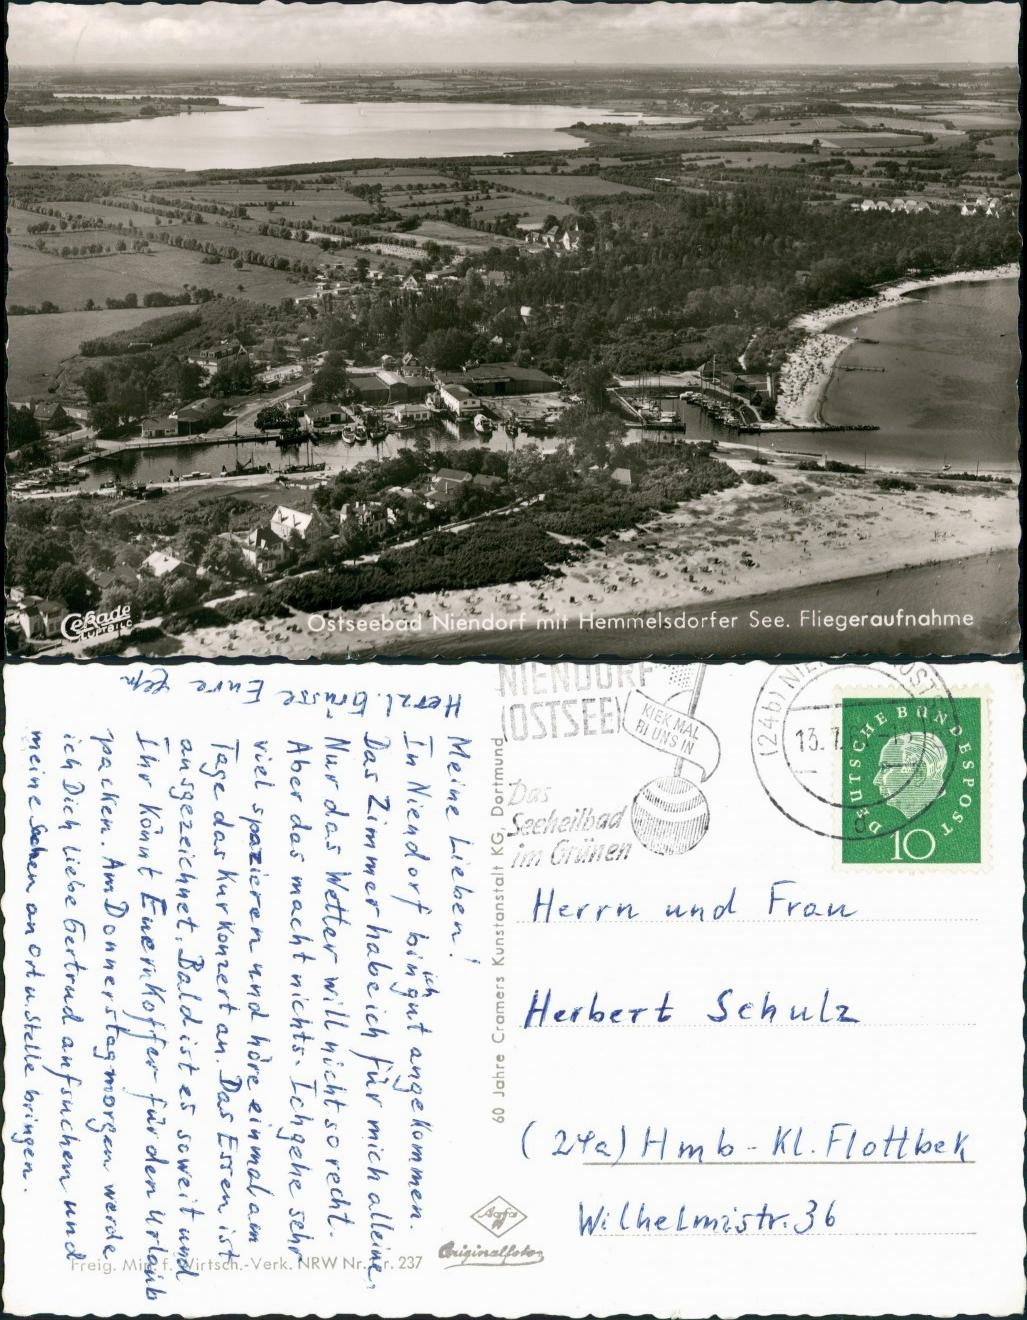 Cekade
LUFTBILD
Ostseebad Niendorf mit Hemmelsdorfer See. Fliegeraufnahme
Meine Lieben!
In Niendorf bin ich gut angekommen.
Das Zimmer habe ich für mich alleine,
Nur das Wetter will nicht so recht.
Aber das macht nichts. Ich gehe sehr
viel spazieren und höre einmal am
Tage das Kurkonzert an. Das Essen ist
ausgezeichnet. Bald ist es soweit und
Ihr könnt Euern Koffer für den Urlaub
packen. Am Donnerstagmorgen werde
ich Dich liebe Gertrud aufsuchen und
meine Sachen an Ort u. Stelle bringen.
Herzl. Grüsse Eure
60 Jahre Cramers Kunstanstalt KG, Dortmund
NIENDORF
(OSTSEE)
KIEK MAL
BI UNS IN
Das
Seeheilbad
im Grünen
(24b) NIENDORF (OSTSEE)
13.7.
DEUTSCHE BUNDESPOST
10
Herrn und Frau
Herbert Schulz
(24a) Hmb-Kl. Flottbek
Wilhelmistr. 36
Agfa
Originalfoto
Freig. Min. f. Wirtsch.-Verk. NRW Nr. 237